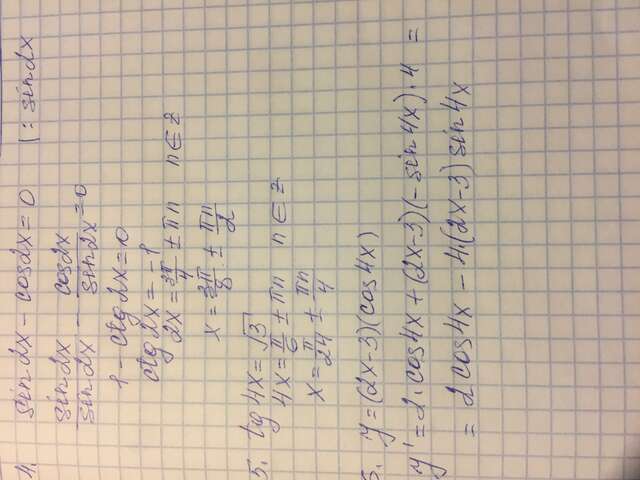 4. sin2x - cos2x = 0 |: sin2x
sin2x/sin2x - cos2x/sin2x = 0
1 - ctg2x = 0
ctg2x = -1
2x = 3π/4 ± πn n ∈ z
x = 3π/8 ± πn/2
5. tg4x = √3
4x = π/6 ± πn n ∈ z
x = π/24 ± πn/4
6. y = (2x-3)(cos4x)
y' = 2·cos4x + (2x-3)(-sin4x)·4 =
= 2cos4x - 4(2x-3)sin4x